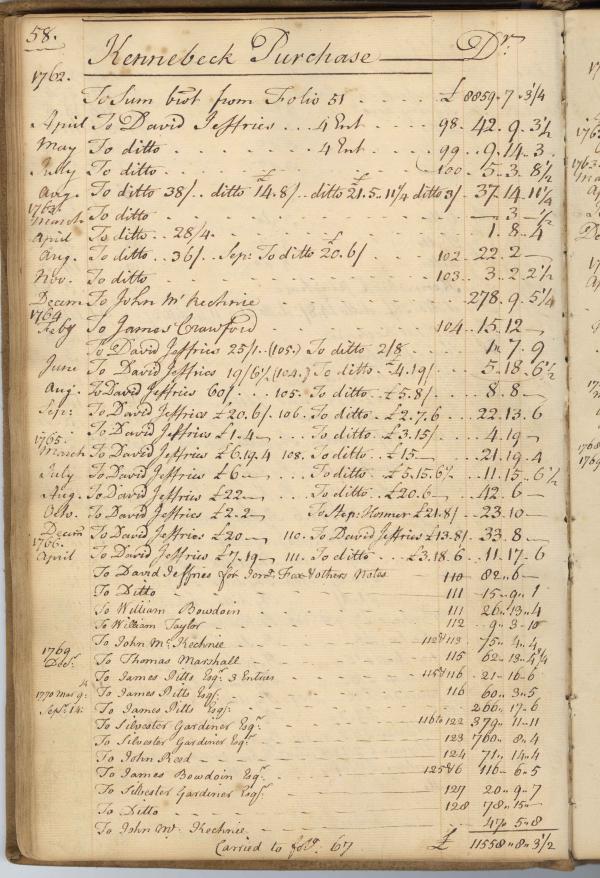 58.
Kennebeck Purchase Dr.
1762.
To Sum brot from Folio 51 £ 8859. 7. 3 1/4
April To David Jeffries 4 Ent 98. 42. 9. 3 1/2
May To ditto 4 Ent 99. 9. 14. 3
July To ditto 100. 5. 3. 8 1/2
Aug. To ditto 38/. ditto £14. 8/. ditto £21. 5. 11 1/4 ditto 3/. 37. 14. 11 1/4
1763. March. To ditto 3 1/2
April To ditto 28/4. 1. 8. 4
Aug. To ditto 36/. Sep: To ditto £20. 6/ 102. 22. 2
Nov. To ditto 103. 3. 2. 2 1/2
Decem To John McKechnie 278. 9. 5 1/4
1764 Feby To James Crawford 104. 15. 12
To David Jeffries 25/1. (105.) To ditto 2/8 1. 7. 9
June To David Jeffries 19/6 1/2 (104.) To ditto 4. 19/. 5. 18. 6 1/2
Aug. To David Jeffries 60/. 105. To ditto £5. 8/. 8. 8
Sep: To David Jeffries £20. 6/. 106. To ditto £2. 7. 6 22. 13. 6
To David Jeffries £1. 4 To ditto £3. 15/. 4. 19
1765. March To David Jeffries £6. 19. 4 108. To ditto £15 21. 19. 4
July To David Jeffries £6 To ditto £5. 15. 6 1/2 11. 15. 6 1/2
Aug. To David Jeffries £22 To ditto £20. 6 42. 6
Octo. To David Jeffries £2. 2 To Step: Homer £21. 8/. 23. 10
Decem To David Jeffries £20 110. To David Jeffries £13. 8/. 33. 8
1766. April To David Jeffries £7. 19 111. To ditto £3. 18. 6 11. 17. 6
To David Jeffries for Jord. Fox & others Notes 110 82. 6
To Ditto 111 15. 9. 1
To William Bowdoin 111 26. 13. 4
To William Taylor 112 9. 3. 10
To John McKechnie 112 & 113 75. 4. 4
1769 Decr. To Thomas Marshall 115 62. 13. 4 3/4
To James Pitts Esqr. 3 Entries 115 & 116 21. 16. 6
1770 Mar 9: To James Pitts Esqr. 116 60. 3. 5
Sept. 14: To James Pitts Esqr. 266. 17. 6
To Silvester Gardiner Esqr. 116 to 122 379. 11. 11
To Silvester Gardiner Esqr. 123 760. 8. 4
To John Reed 124 71. 14. 4
To James Bowdoin Esqr. 125 & 6 116. 6. 5
To Silvester Gardiner Esqr. 127 20. 9. 7
To Ditto 128 78. 15
To John Mc Kechnie 47. 5. 8
Carried to folo. 67 £ 11558. 8. 3 1/2